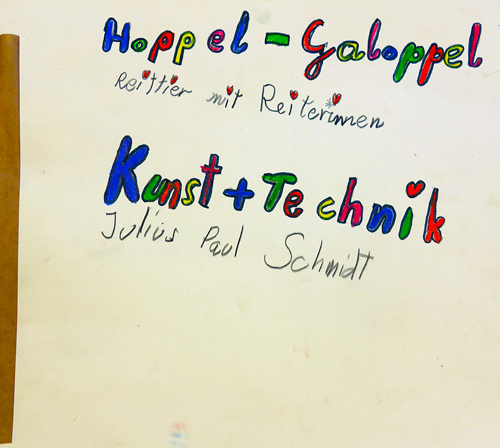 Hoppel - Galoppel
Reittier mit Reiterinnen
Kunst + Technik
Julius Paul Schmidt